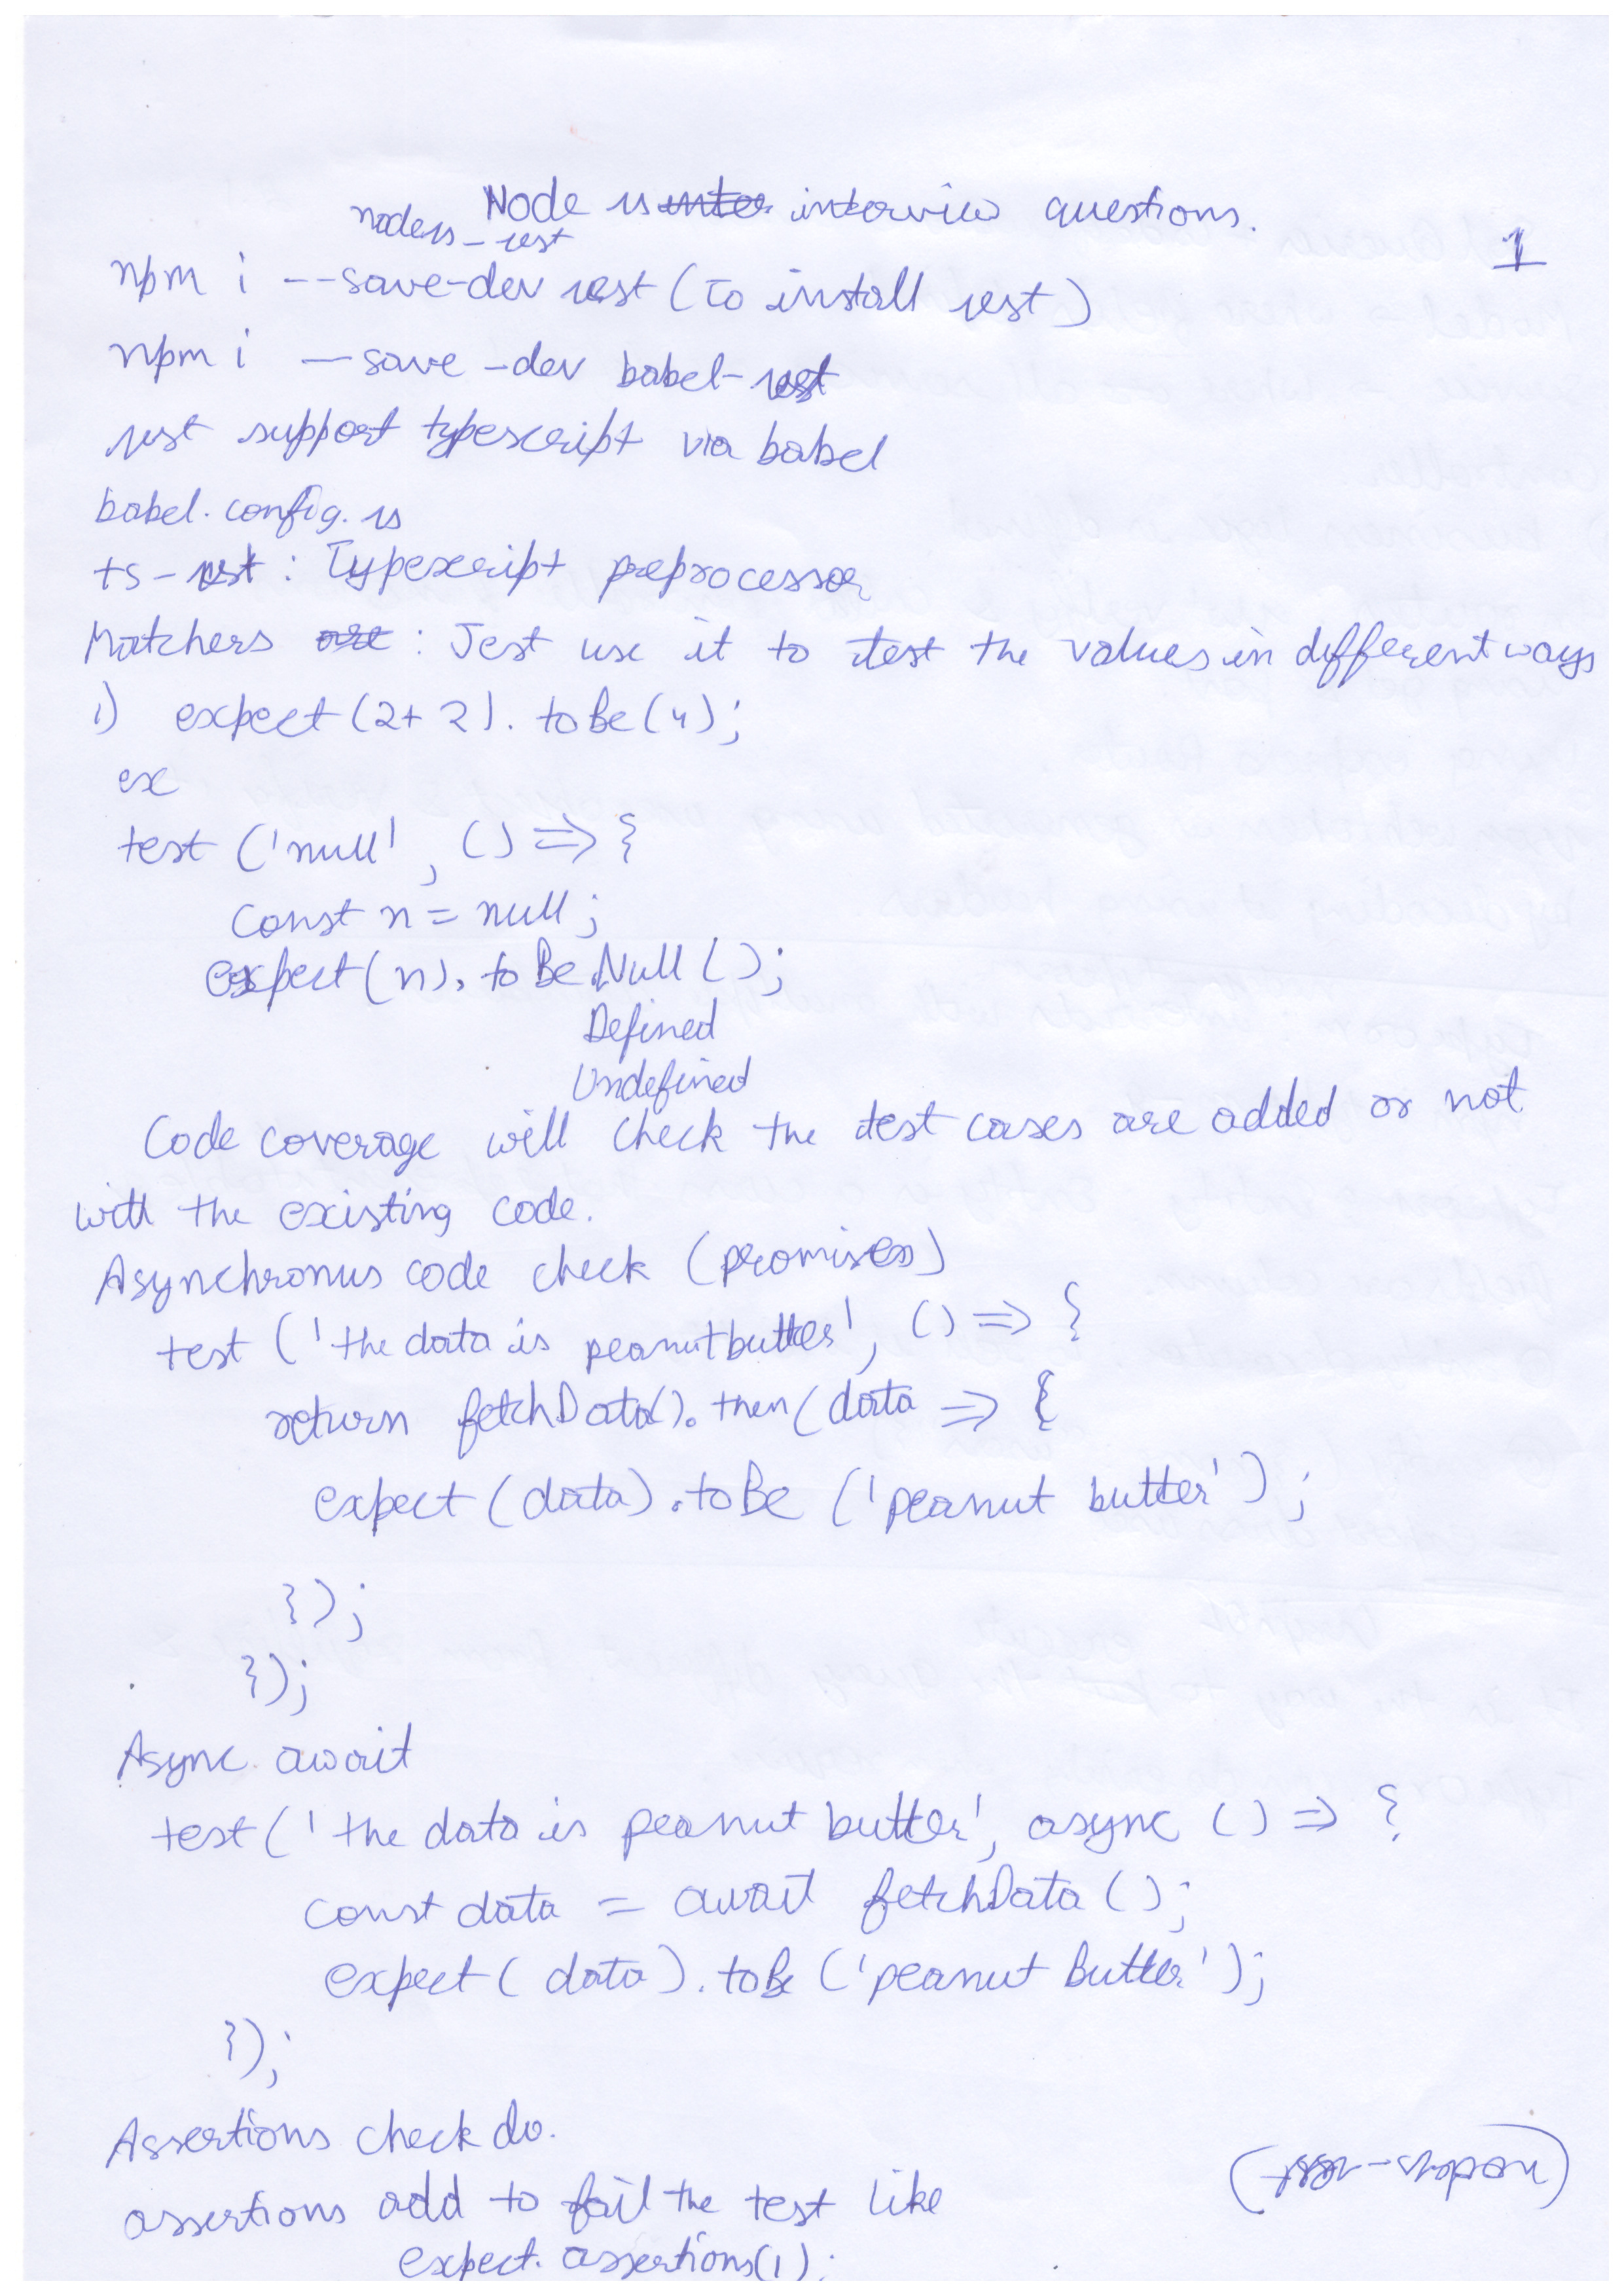 Node js inter interview questions.
nodejs-jest
1
npm i --save-dev jest (to install jest)
npm i -save-dev babel-jest
jest support typescript via babel
babel.config.js
ts-jest: Typescript preprocessor
Matchers are: Jest use it to test the values in different ways
1) expect(2+2).toBe(4);
ex
test('null', () => {
const n = null;
expect(n).toBe.Null();
Defined
Undefined
Code coverage will check the test cases are added or not
with the existing code.
Asynchronus code check (promises)
test('the data is peanutbutter', () => {
return fetchData().then(data => {
expect(data).toBe('peanut butter');
});
});
Async await
test('the data is peanut butter', async () => {
const data = await fetchData();
expect(data).toBe('peanut butter');
});
Assertions check do.
assertions add to fail the test like
expect.assertions(1);
(nodejs-jest)